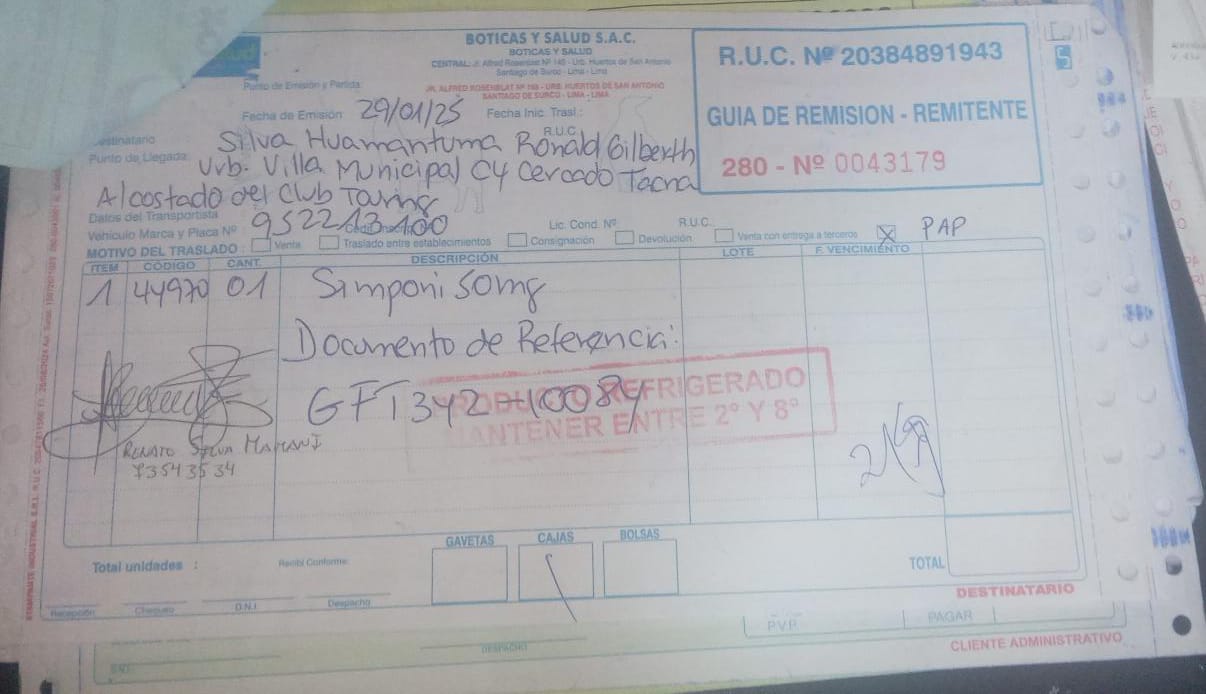 BOTICAS Y SALUD S.A.C.
BOTICAS Y SALUD
CENTRAL: Jr. Alfred Rosenblat Nº 145 - Urb. Huertos de San Antonio
Santiago de Surco - Lima - Lima
Punto de Emisión y Partida:
JR. ALFRED ROSENBLAT Nº - URB. HUERTOS DE SAN ANTONIO
SANTIAGO DE SURCO - LIMA - LIMA
R.U.C. Nº 20384891943
GUIA DE REMISION - REMITENTE
280 - Nº 0043179
Fecha de Emisión: 29/01/25 Fecha Inic. Trasl.:
Destinatario Silva Huamantuma Ronald Gilberth R.U.C.
Punto de Llegada: Urb. Villa Municipal C4 Cercado Tacna
Al costado del Club Touring
Datos del Transportista
Vehículo Marca y Placa Nº 952213100 Lic. Cond. Nº R.U.C.
MOTIVO DEL TRASLADO: Venta Traslado entre establecimientos Consignación Devolución Venta con entrega a terceros X PAP
ITEM CÓDIGO CANT. DESCRIPCIÓN LOTE F. VENCIMIENTO
1 44970 01 Simponi 50mg
Documento de Referencia:
GFT342-10084
PRODUCTO REFRIGERADO
MANTENER ENTRE 2° Y 8°
RENATO SILVA MAMANI
73543534
GAVETAS CAJAS BOLSAS
Total unidades : Recibí Conforme: TOTAL
Recepción Chequeo D.N.I. Despacho
DESTINATARIO
PVP PAGAR
DESPACHO
CLIENTE ADMINISTRATIVO